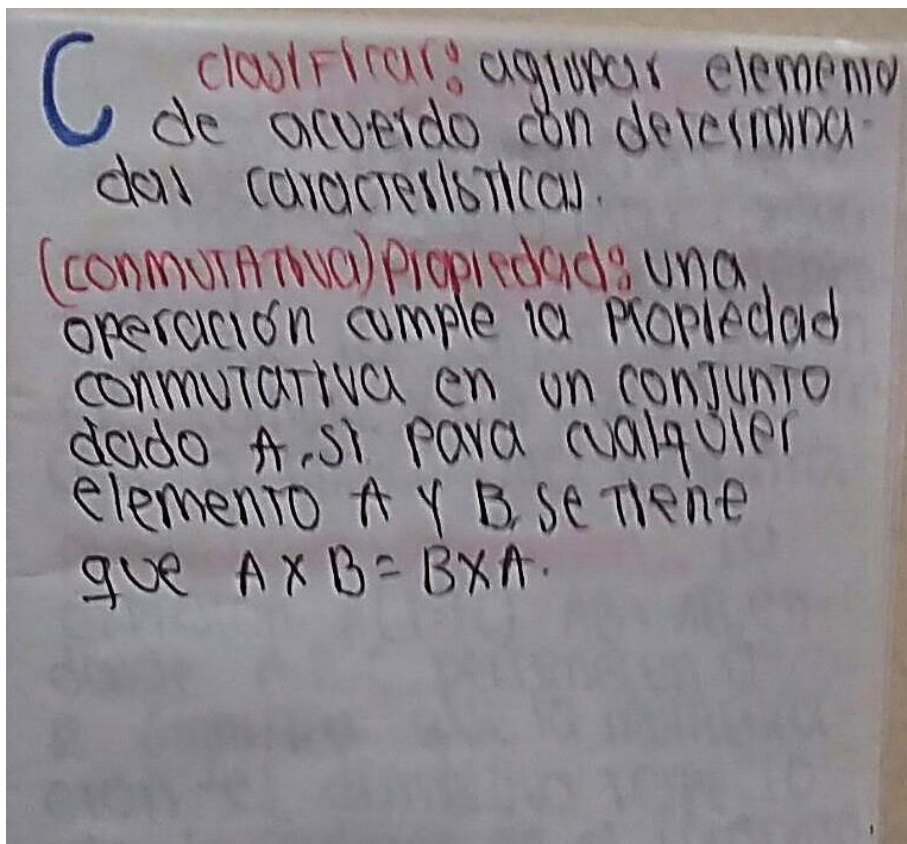 C clasificar: agrupar elemento
de acuerdo con determina-
das características.
(conmutativa) Propiedad: una
operación cumple la propiedad
conmutativa en un conjunto
dado A, si para cualquier
elemento A y B, se tiene
que A x B = B x A.